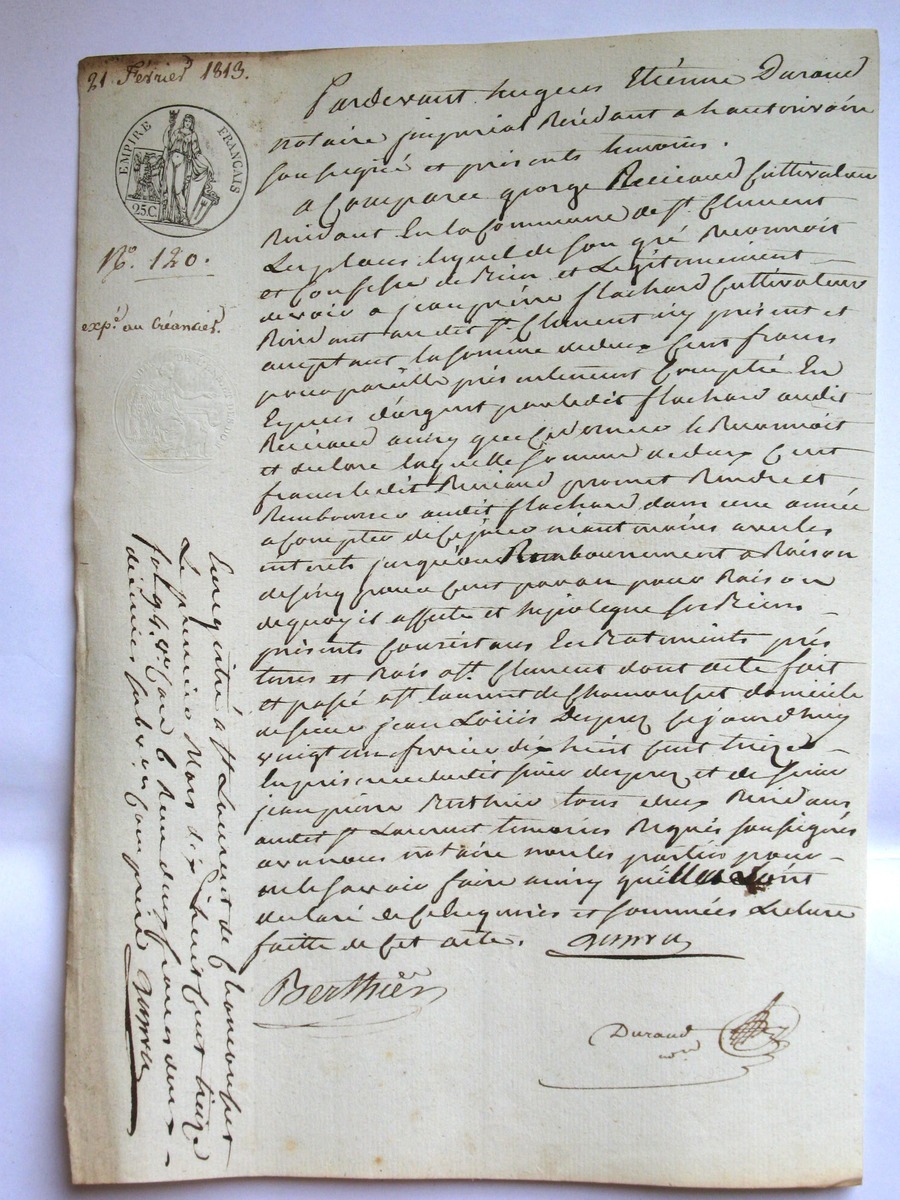 21 Février 1813.
EMPIRE FRANÇAIS
25C
N.° 120.
exp.é au Créancier
Pardevant hugues Etiénne Durand
notaire jmperial Résidant a hauterivoire
soussigné et présents temoins.
a Comparu george Cultivateur
Residant En la Commune de st. Clement
Les places lequel de son gré Reconnoit
et Confesse de Bien et Legitimement
devoir a jean piérre flachard Cultivateur
Residant au dit st. Clement icy présent et
acceptant la somme de deux Cent francs
pour pareille présentement Comptée En
Especes d'argent par ledit flachard audit
ainsy que Ce dernier le Reconnoit
et declare laquelle somme de deux Cent
francs ledit promet Rendre et
Rembourcer audit flachard dans une année
a Compter de Cejour neantmoins avec les
interets jusqu'au Rembourcement a Raison
de sinq pour Cent par an pour Raison
dequoy il affecte et hipoteque ses Biens
présents Consistans En Batiments prés
terres et Bois a st. Clement dont acte fait
et passé a st. laurent de Chamousset domicile
de sieur jean Loüis Desprez Cejourd'huy
vingt un fevrier dix huit Cent treize
En présence dudit sieur desprez et de sieur
jean piérre Berthier tous deux Residans
audit st. Laurent temoins Requis soussignés
avec nous notaire non les parties pour
ne le savoir faire ainsy qu'elles ont
declaré de Ce Requises et sommées Lecture
faitte de Cet acte.
Berthier
Durand
nre
Enregistré a st. Laurent de Chamousset
Le premier Mars dix huit Cent treize
fol. 94. Reçu deux francs deux
décimes subv.on Comprise